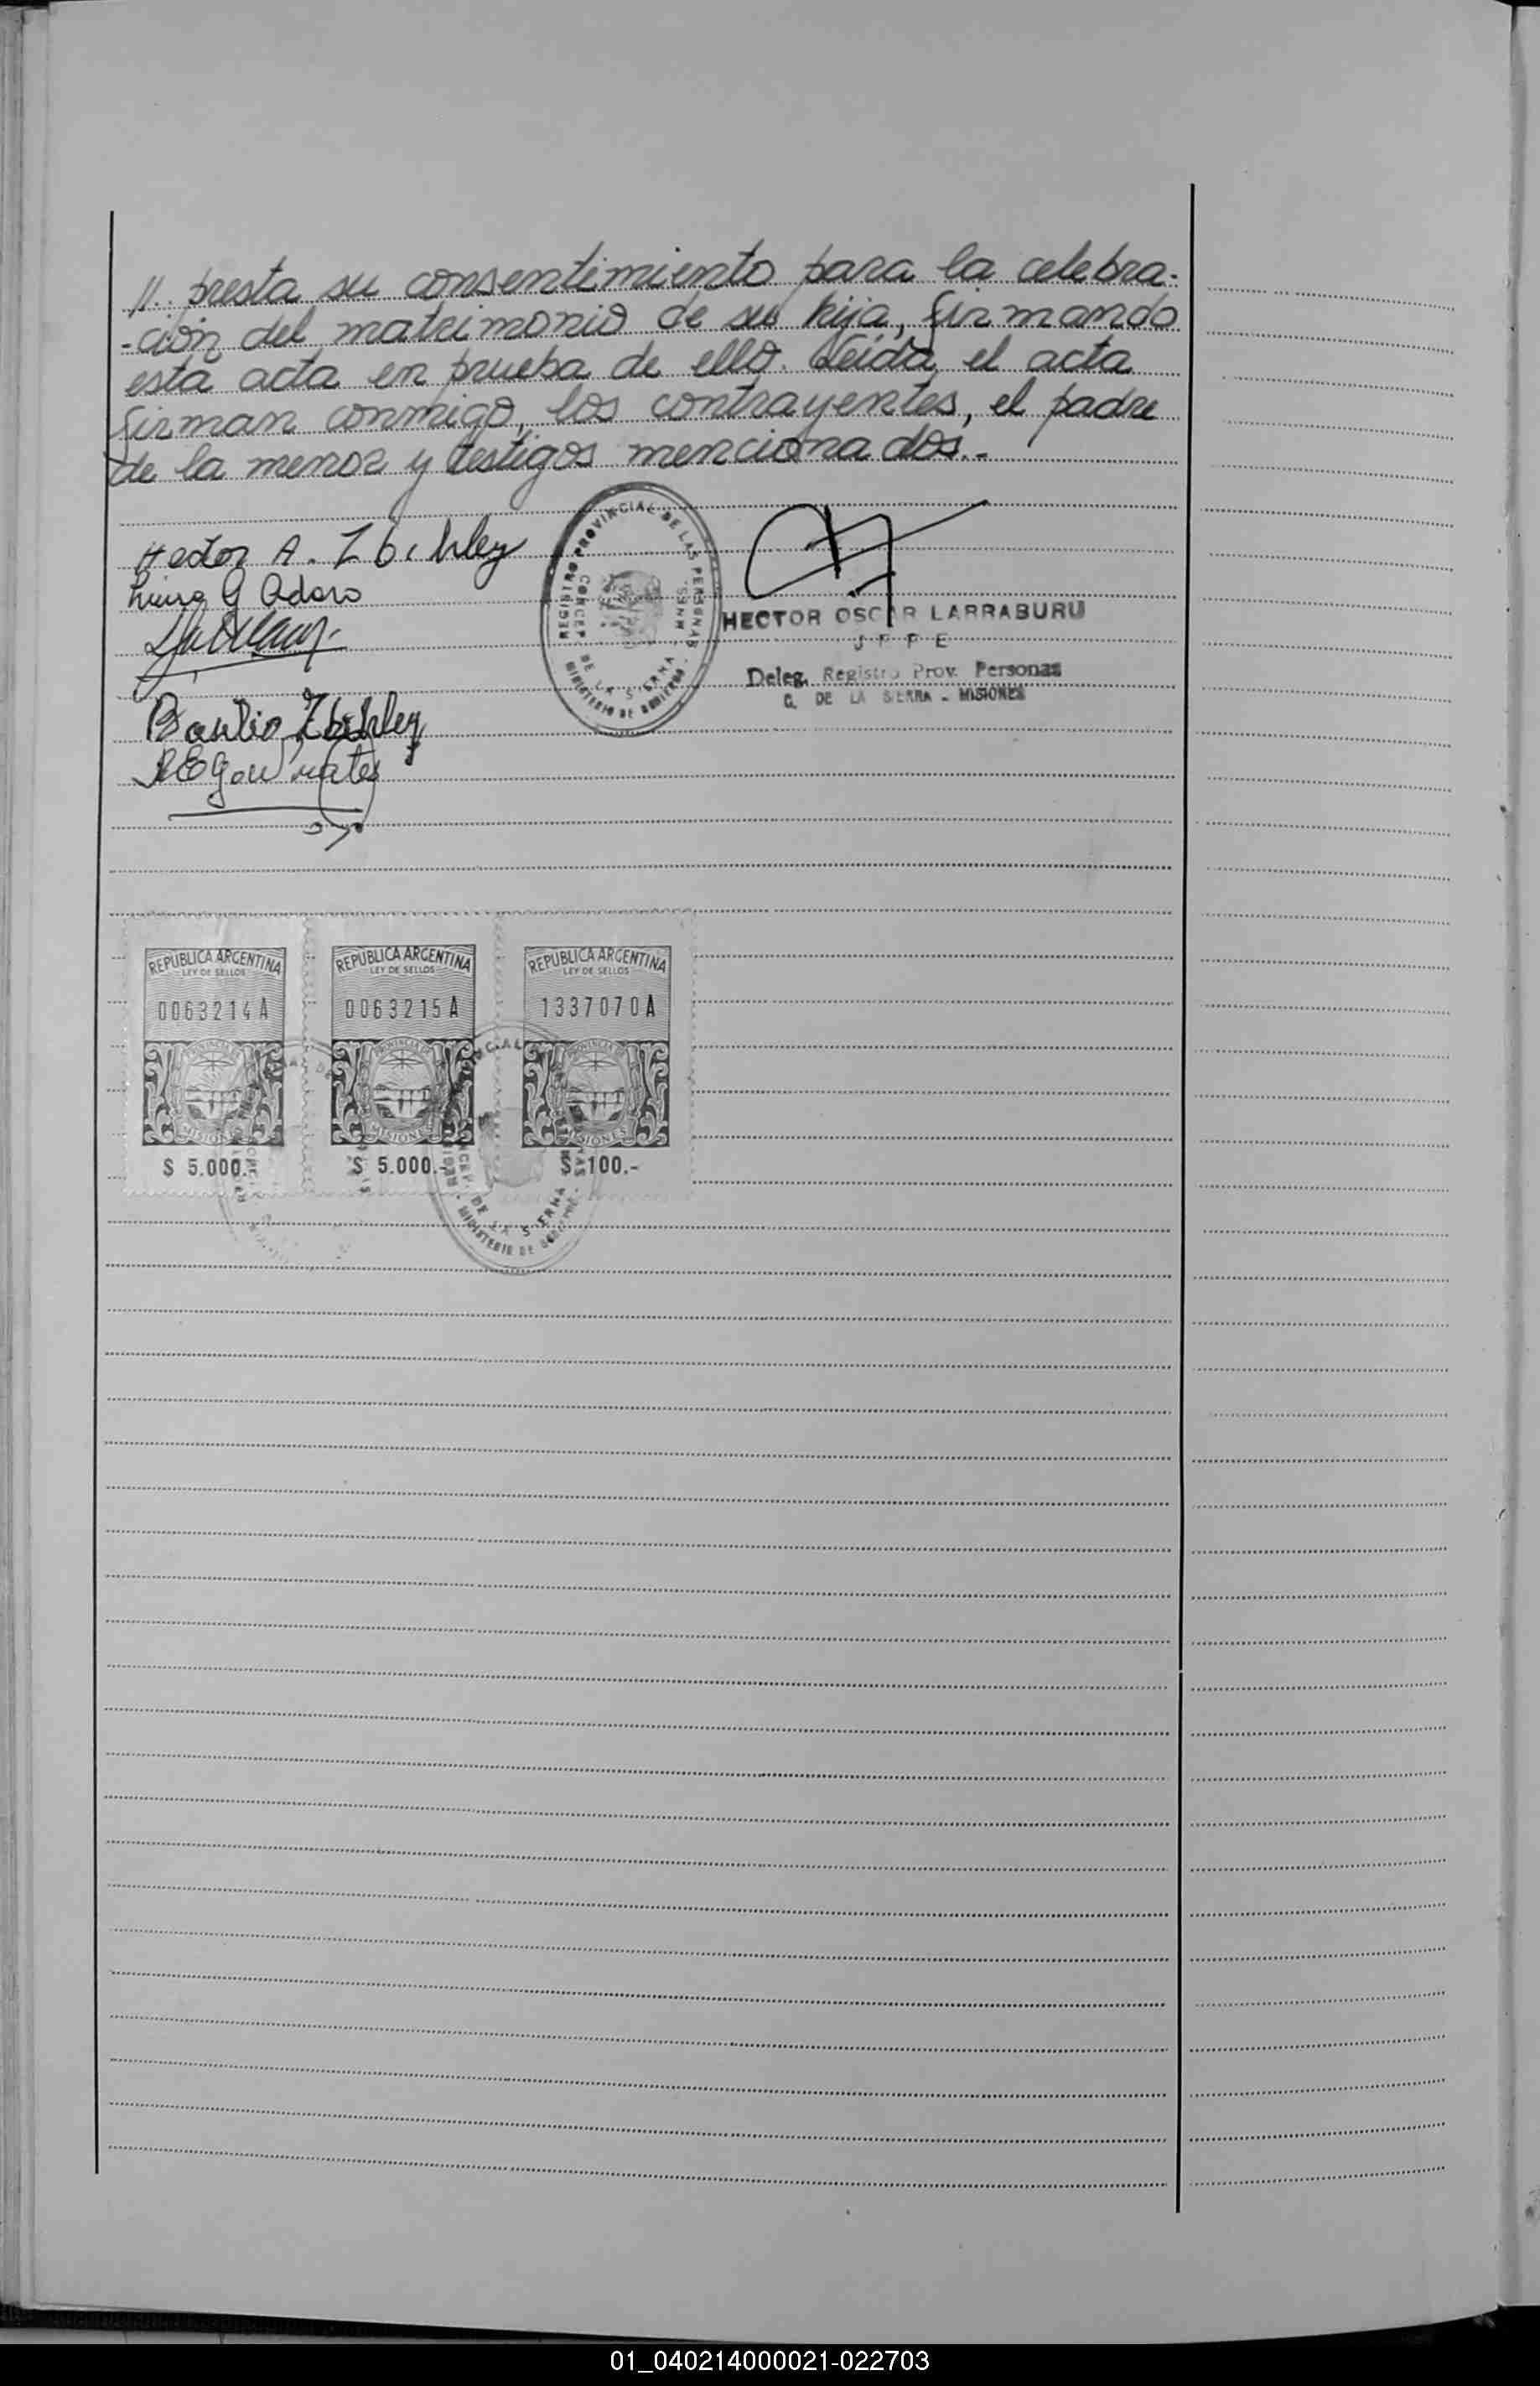 //. presta su consentimiento para la celebra-
-ción del matrimonio de su hija, firmando
esta acta en prueba de ello. Leída el acta
firman conmigo, los contrayentes, el padre
de la menor y testigos mencionados.-
Hector A.
REGISTRO PROVINCIAL DE LAS PERSONAS
CONCEP. DE LA SIERRA
MINISTERIO DE GOBIERNO
HECTOR OSCAR LARRABURU
J P P E
Deleg. Registro Prov. Personas
C. DE LA SIERRA - MISIONES
Basilio
REPUBLICA ARGENTINA
LEY DE SELLOS
0063214A
PROVINCIA DE
MISIONES
$ 5.000.-
REPUBLICA ARGENTINA
LEY DE SELLOS
0063215A
PROVINCIA DE
MISIONES
$ 5.000.-
REPUBLICA ARGENTINA
LEY DE SELLOS
1337070A
PROVINCIA DE
MISIONES
$ 100.-
DE LA SIERRA
MINISTERIO DE GOBIERNO
01_040214000021-022703